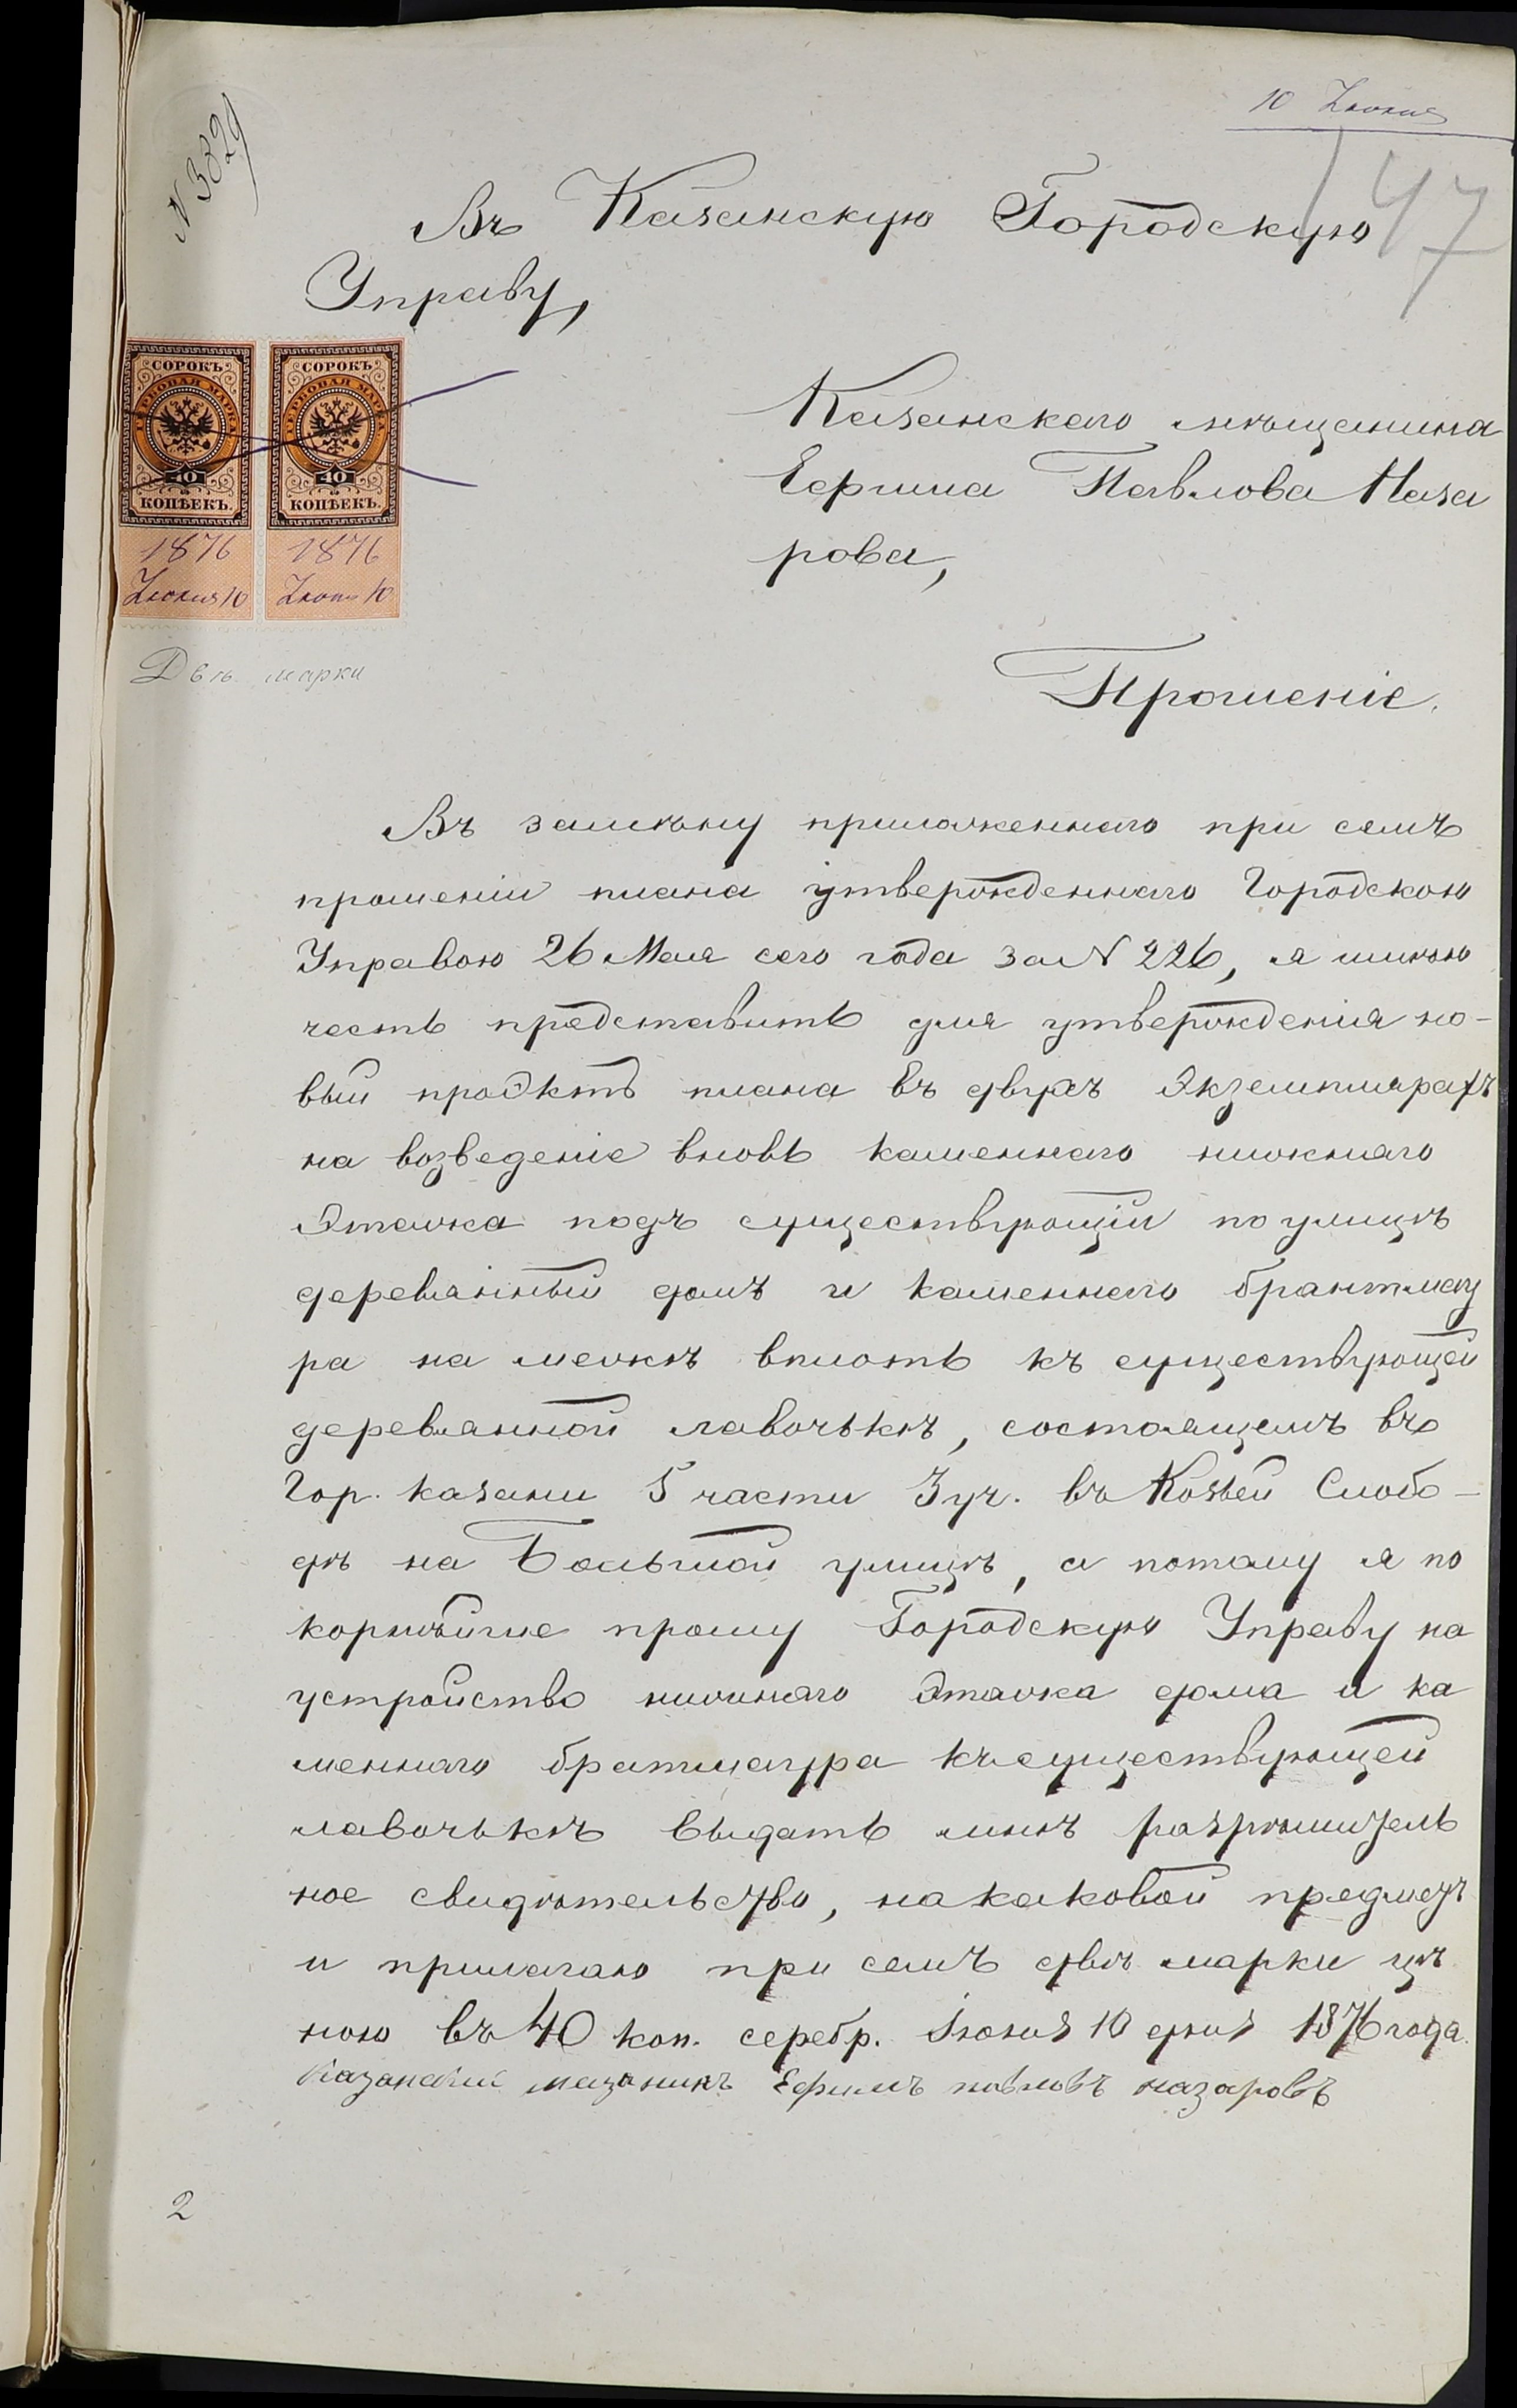 10 Іюня
147
N 3829
Въ Казанскую Городскую
Управу,
СОРОКЪ СОРОКЪ
ГЕРБОВАЯ МАРКА ГЕРБОВАЯ МАРКА
40 40
КОПѢЕКЪ. КОПѢЕКЪ.
1876 1876
Іюня 10 Іюня 10
Двѣ марки
Казанскаго мѣщанина
Ефима Павлова Наза
рова,
Прошеніе.
Въ замѣну приложеннаго при семъ
прошеніи плана утвержденнаго Городскою
Управою 26 Мая сего года за N 226, я имѣю
честь представить для утвержденія но-
вый проэктъ плана въ двухъ экземплярахъ
на возведеніе вновь каменнаго нижняго
этажа подъ существующій по улицѣ
деревянный домъ и каменнаго брантмау
ра на межѣ вплоть къ существующей
деревянной лавочькѣ, состоящемъ въ
Гор. казани 5 части 3 уч. въ Козьей Слобо-
дѣ на Большой улицѣ, а потому я по
корнѣйше прошу Городскую Управу на
устройство нижняго этажа дома и ка
меннаго братмаура къ существующей
лавочькѣ выдать мнѣ разрѣшитель
ное свидѣтельство, на каковой предметъ
и прилагаю при семъ двѣ марки цѣ
ною въ 40 коп. серебр. Іюня 10 дня 1876 года.
Казанскій мещанинъ Ефимъ павловъ назаровъ
2